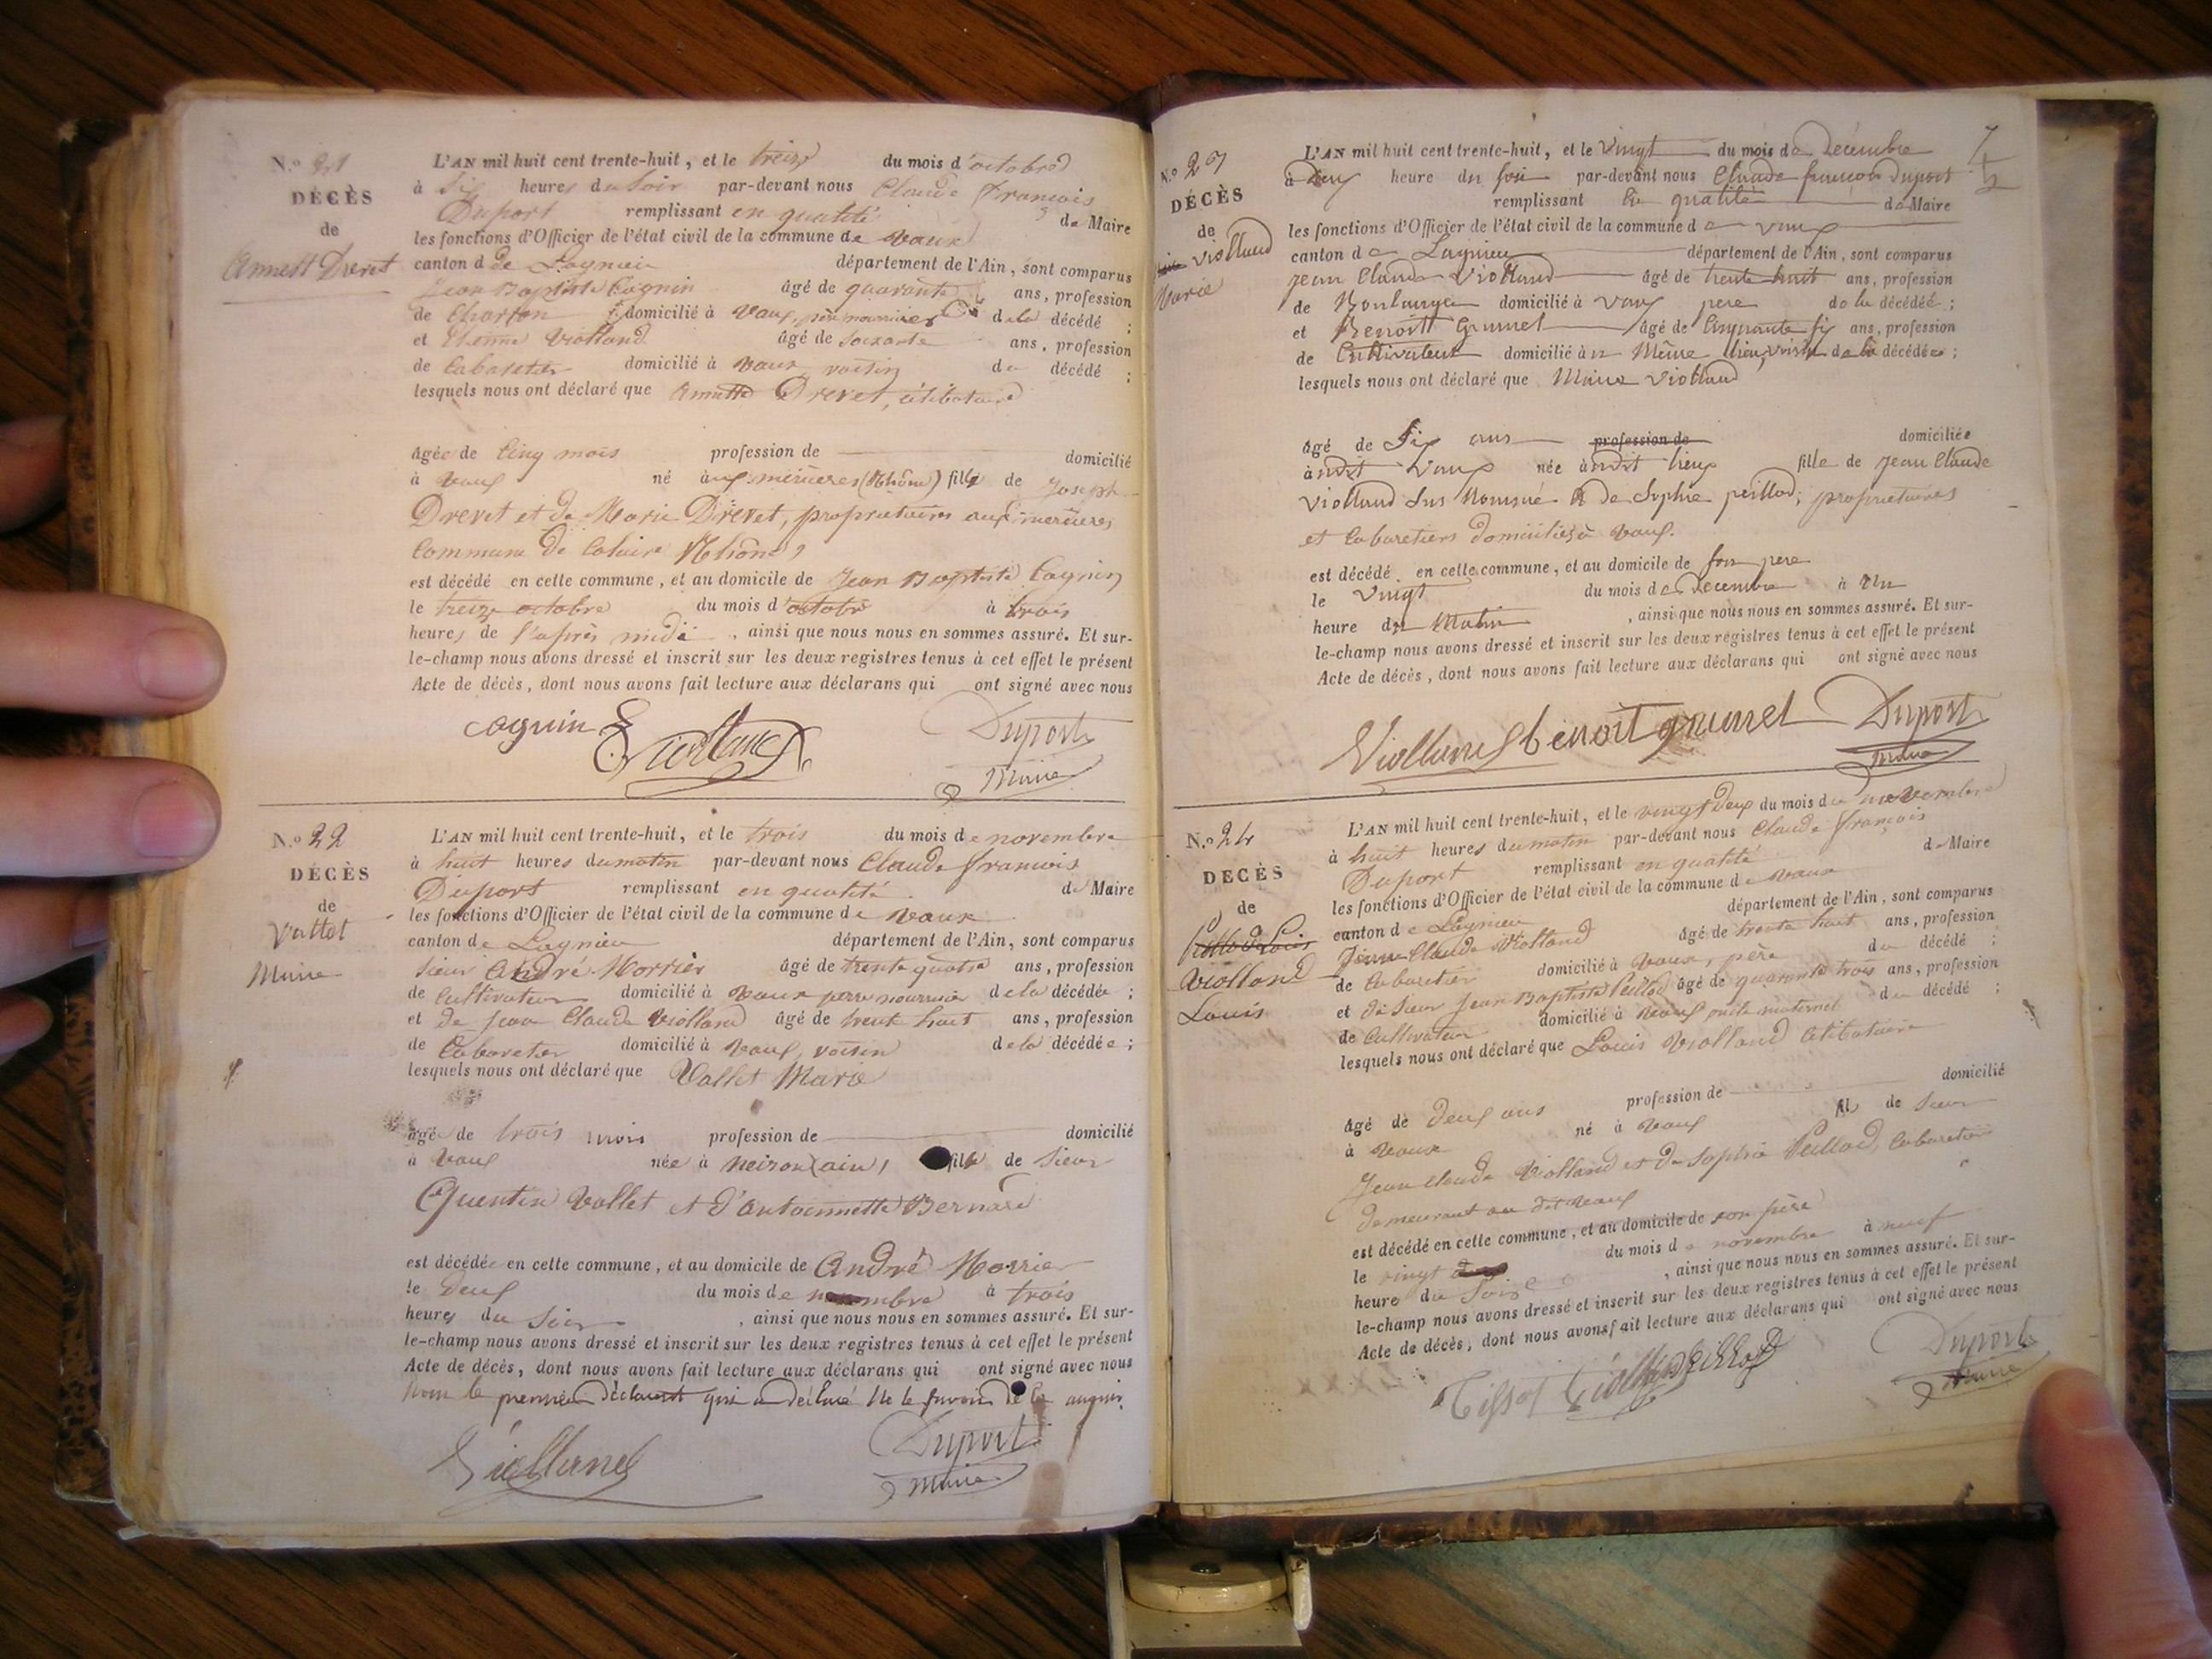 N.º 21
DÉCÈS
de
Annett Drevet
L'AN mil huit cent trente-huit, et le treize du mois d'octobre
à six heures du soir par-devant nous Claude François
Duport remplissant en qualité de Maire
les fonctions d'Officier de l'état civil de la commune de Vaux
canton d de Lagnieu département de l'Ain, sont comparus
Jean Baptiste Cagnin âgé de quarante ans, profession
de Charron domicilié à Vaux, père nourricier de la décédé ;
et Etienne Violland âgé de soixante ans, profession
de Cabaretier domicilié à Vaux, voisin de décédé ;
lesquels nous ont déclaré que Annette Drevet, célibataire
âgée de Cinq mois profession de domicilié
à Vaux né aux mercieres (Rhône) fille de Joseph
Drevet et de Marie Drevet, propriétaires aux mercieres,
Commune de Caluire Rhône,
est décédé en cette commune, et au domicile de Jean Baptiste Cagnin
le treize octobre du mois d'octobre à trois
heures de l'après midi, ainsi que nous nous en sommes assuré. Et sur-
le-champ nous avons dressé et inscrit sur les deux registres tenus à cet effet le présent
Acte de décès, dont nous avons fait lecture aux déclarans qui ont signé avec nous
cagnin E Violland Duport
Maire
N.º 22
DÉCÈS
de
Vallet
Marie
L'AN mil huit cent trente-huit, et le trois du mois de novembre
à huit heures du matin par-devant nous Claude François
Duport remplissant en qualité de Maire
les fonctions d'Officier de l'état civil de la commune de Vaux
canton de Lagnieu département de l'Ain, sont comparus
sieur André Morrier âgé de trente quatre ans, profession
de Cultivateur domicilié à Vaux père nourricier de la décédée ;
et de Jean Claude Violland âgé de trente huit ans, profession
de Cabaretier domicilié à Vaux, voisin de la décédée ;
lesquels nous ont déclaré que Vallet Marie
âgé de trois mois profession de domicilié
à Vaux née à neiron (ain) fille de sieur
Quentin Vallet et d'antoinnette Bernard
est décédée en cette commune, et au domicile de André Morrier
le deux du mois de novembre à trois
heures du soir, ainsi que nous nous en sommes assuré. Et sur-
le-champ nous avons dressé et inscrit sur les deux registres tenus à cet effet le présent
Acte de décès, dont nous avons fait lecture aux déclarans qui ont signé avec nous
non le premier déclarant qui a déclaré ne le savoir de ce
Violland Duport
Maire
N.º 23
DÉCÈS
de
Violland
Marie
L'AN mil huit cent trente-huit, et le vingt du mois de Décembre
à deux heure du soir par-devant nous Claude françois Duport
remplissant en qualité de Maire
les fonctions d'Officier de l'état civil de la commune de vaux
canton de Lagnieu département de l'Ain, sont comparus
jean Claude Violland âgé de trente huit ans, profession
de Boulanger domicilié à vaux pere de la décédée ;
et Benoit Grumel âgé de Cinquante six ans, profession
de Cultivateur domicilié à u Même lieu, voisin de la décédée ;
lesquels nous ont déclaré que Marie Viollaud
âgé de Six ans profession de domiciliée
à udit Vaux née à udit lieux fille de Jean Claude
Viollaud sus Nommé & de Sophie peillod, proprietaires
et Cabaretiers domiciliés à vaux.
est décédé en cette commune, et au domicile de son pere
le vingt du mois de Decembre à Un
heure du Matin, ainsi que nous nous en sommes assuré. Et sur-
le-champ nous avons dressé et inscrit sur les deux registres tenus à cet effet le présent
Acte de décès, dont nous avons fait lecture aux déclarans qui ont signé avec nous
Violland benoit grumel Duport
Maire
N.º 24
DÉCÈS
de
Violland
Louis
L'AN mil huit cent trente-huit, et le vingt deux du mois de novembre
à huit heures du matin par-devant nous Claude François
Duport remplissant en qualité de Maire
les fonctions d'Officier de l'état civil de la commune de Vaux
canton de Lagnieu département de l'Ain, sont comparus
Jean Claude Violland âgé de trente huit ans, profession
de Cabaretier domicilié à Vaux, père du décédé ;
et de sieur Jean Baptiste Peillod âgé de quarante trois ans, profession
de Cultivateur domicilié à Vaux oncle maternel du décédé ;
lesquels nous ont déclaré que Louis Viollaud célibataire
âgé de deux ans profession de domicilié
à Vaux né à Vaux fils de sieur
Jean Claude Viollaud et de Sophie Peillod, Cabaretier
demeurant au dit Vaux
est décédé en cette commune, et au domicile de son père
le vingt du mois de novembre à neuf
heure du Soir, ainsi que nous nous en sommes assuré. Et sur-
le-champ nous avons dressé et inscrit sur les deux registres tenus à cet effet le présent
Acte de décès, dont nous avons fait lecture aux déclarans qui ont signé avec nous
Violland Peillod Duport
Maire